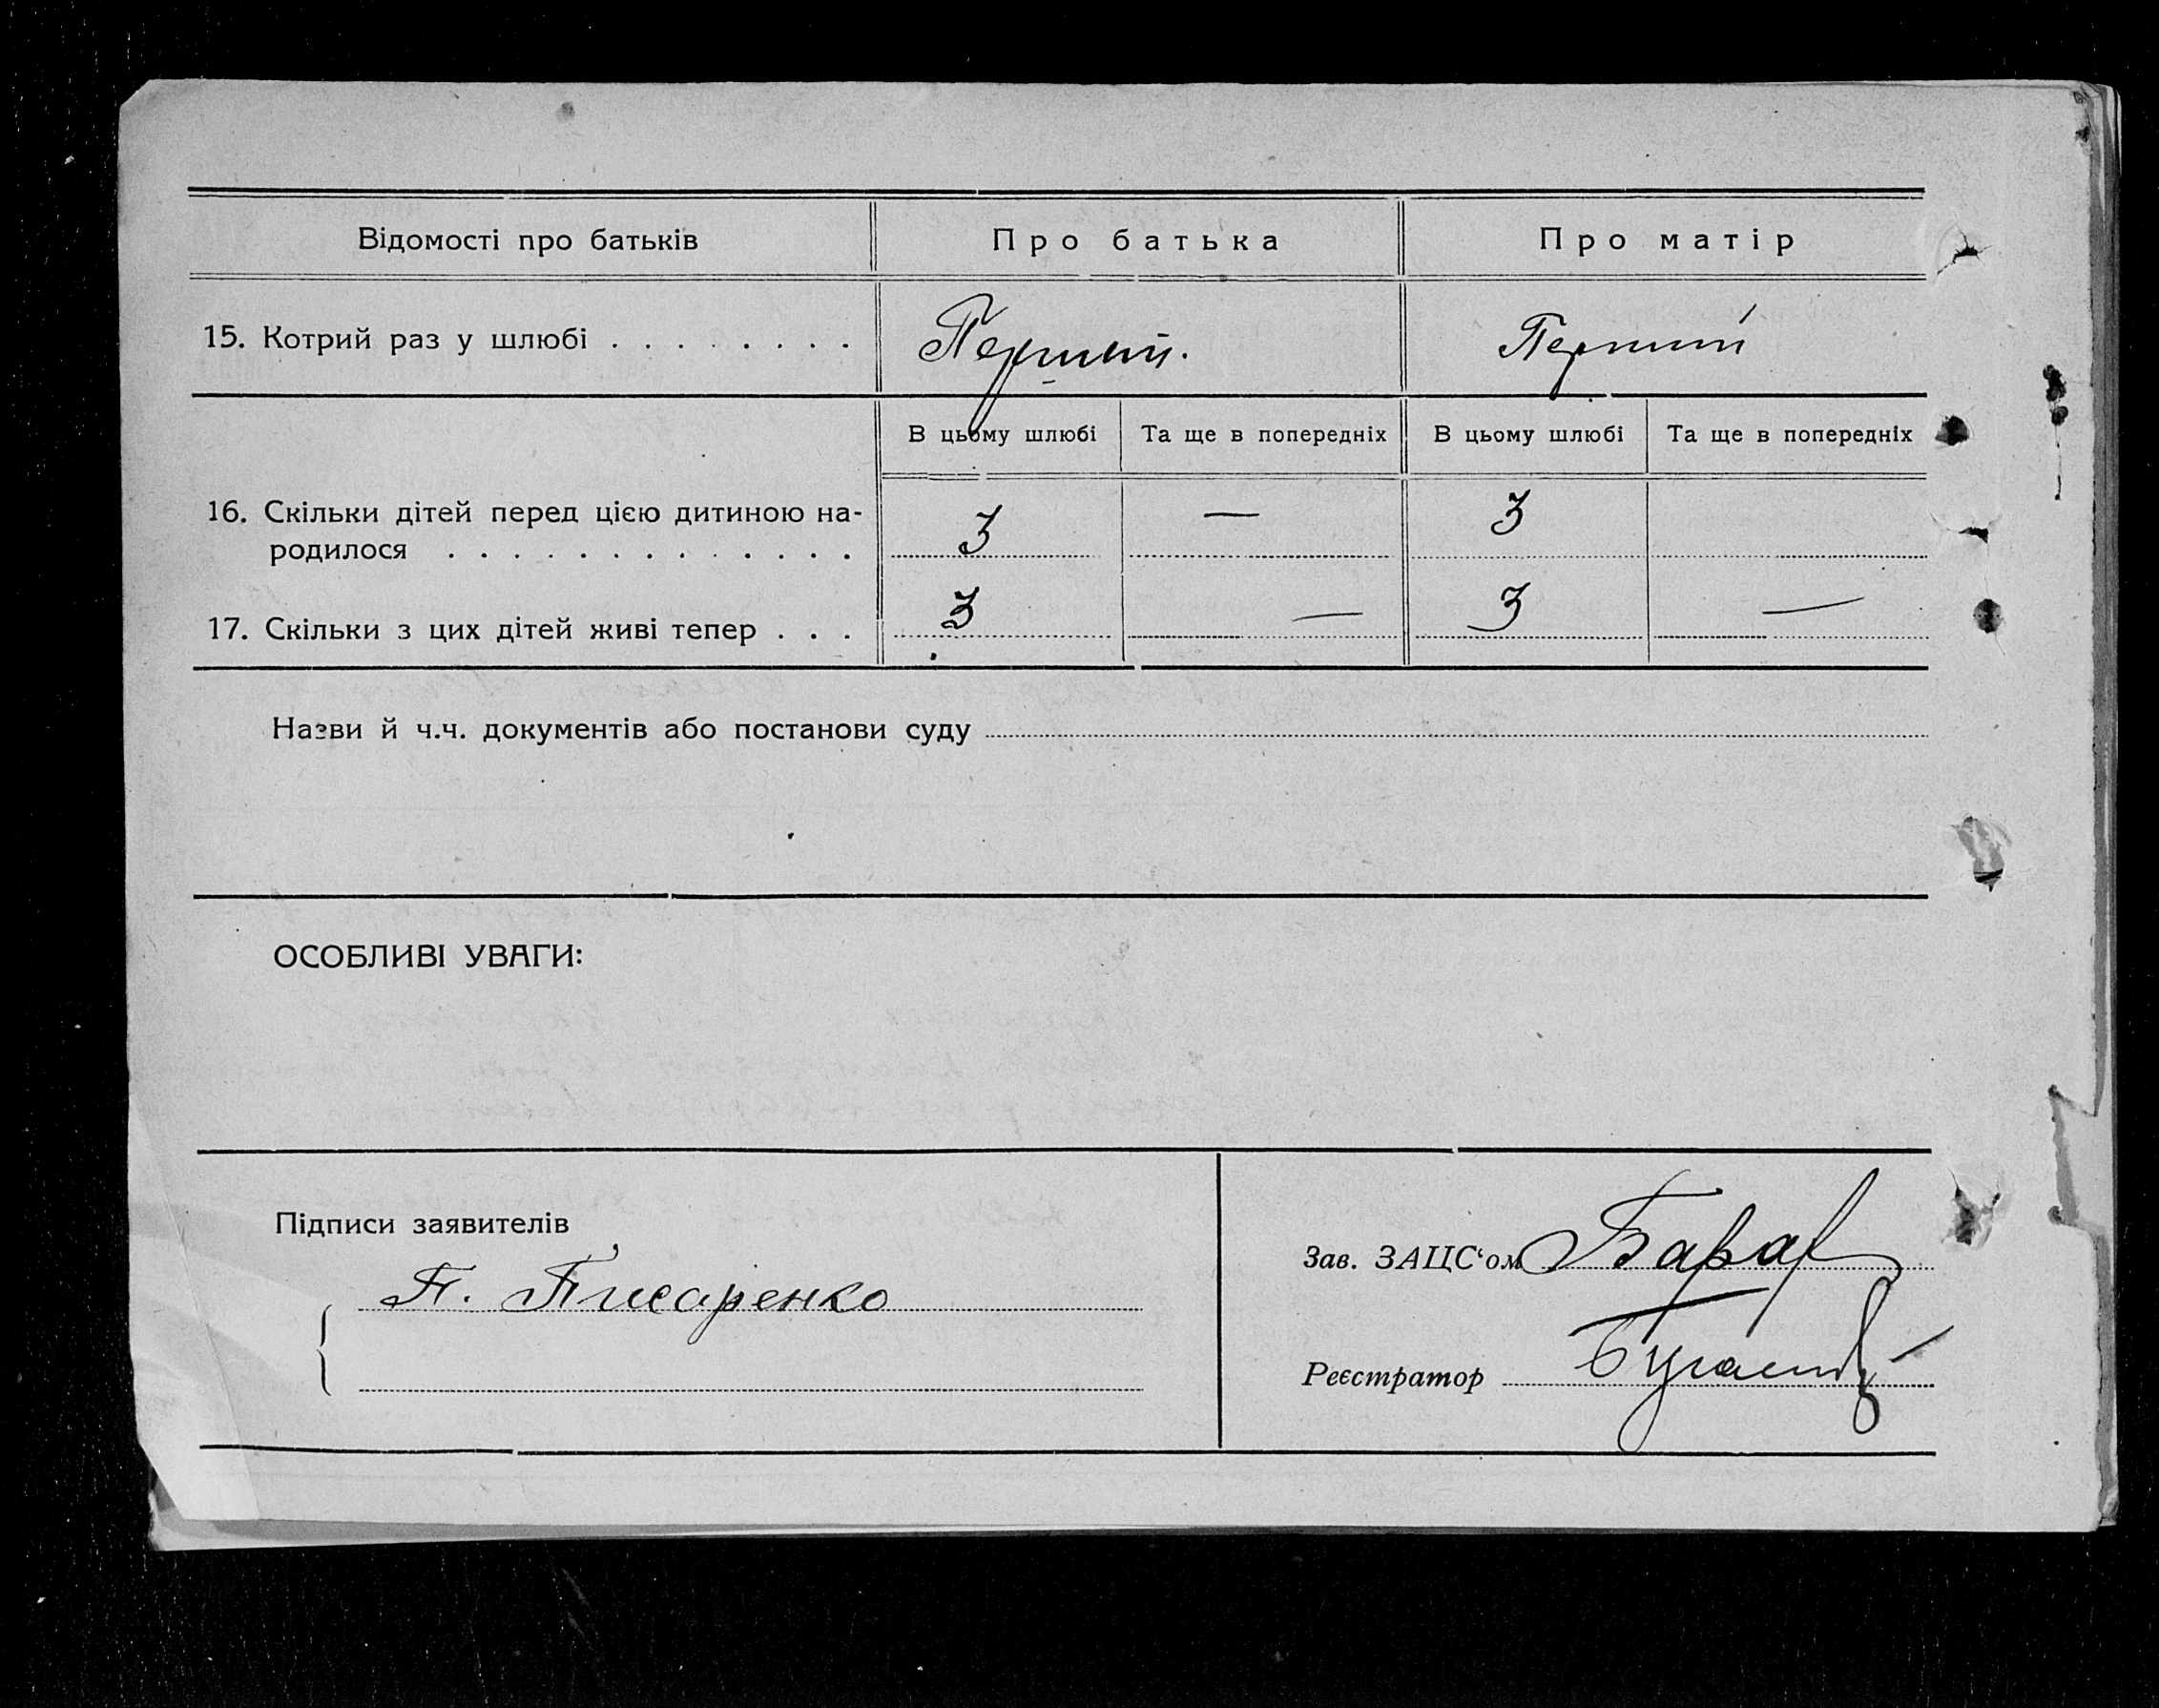 Відомості про батьків Про батька Про матір
15. Котрий раз у шлюбі . . . . . . . . Перший. Перший
В цьому шлюбі Та ще в попередніх В цьому шлюбі Та ще в попередніх
16. Скільки дітей перед цією дитиною на-
родилося . . . . . . . . . . . . . 3 — 3
17. Скільки з цих дітей живі тепер . . . 3 — 3 —
Назви й ч.ч. документів або постанови суду
ОСОБЛИВІ УВАГИ:
Підписи заявителів
П. Писаренко
Зав. ЗАЦС‘ом
Реєстратор